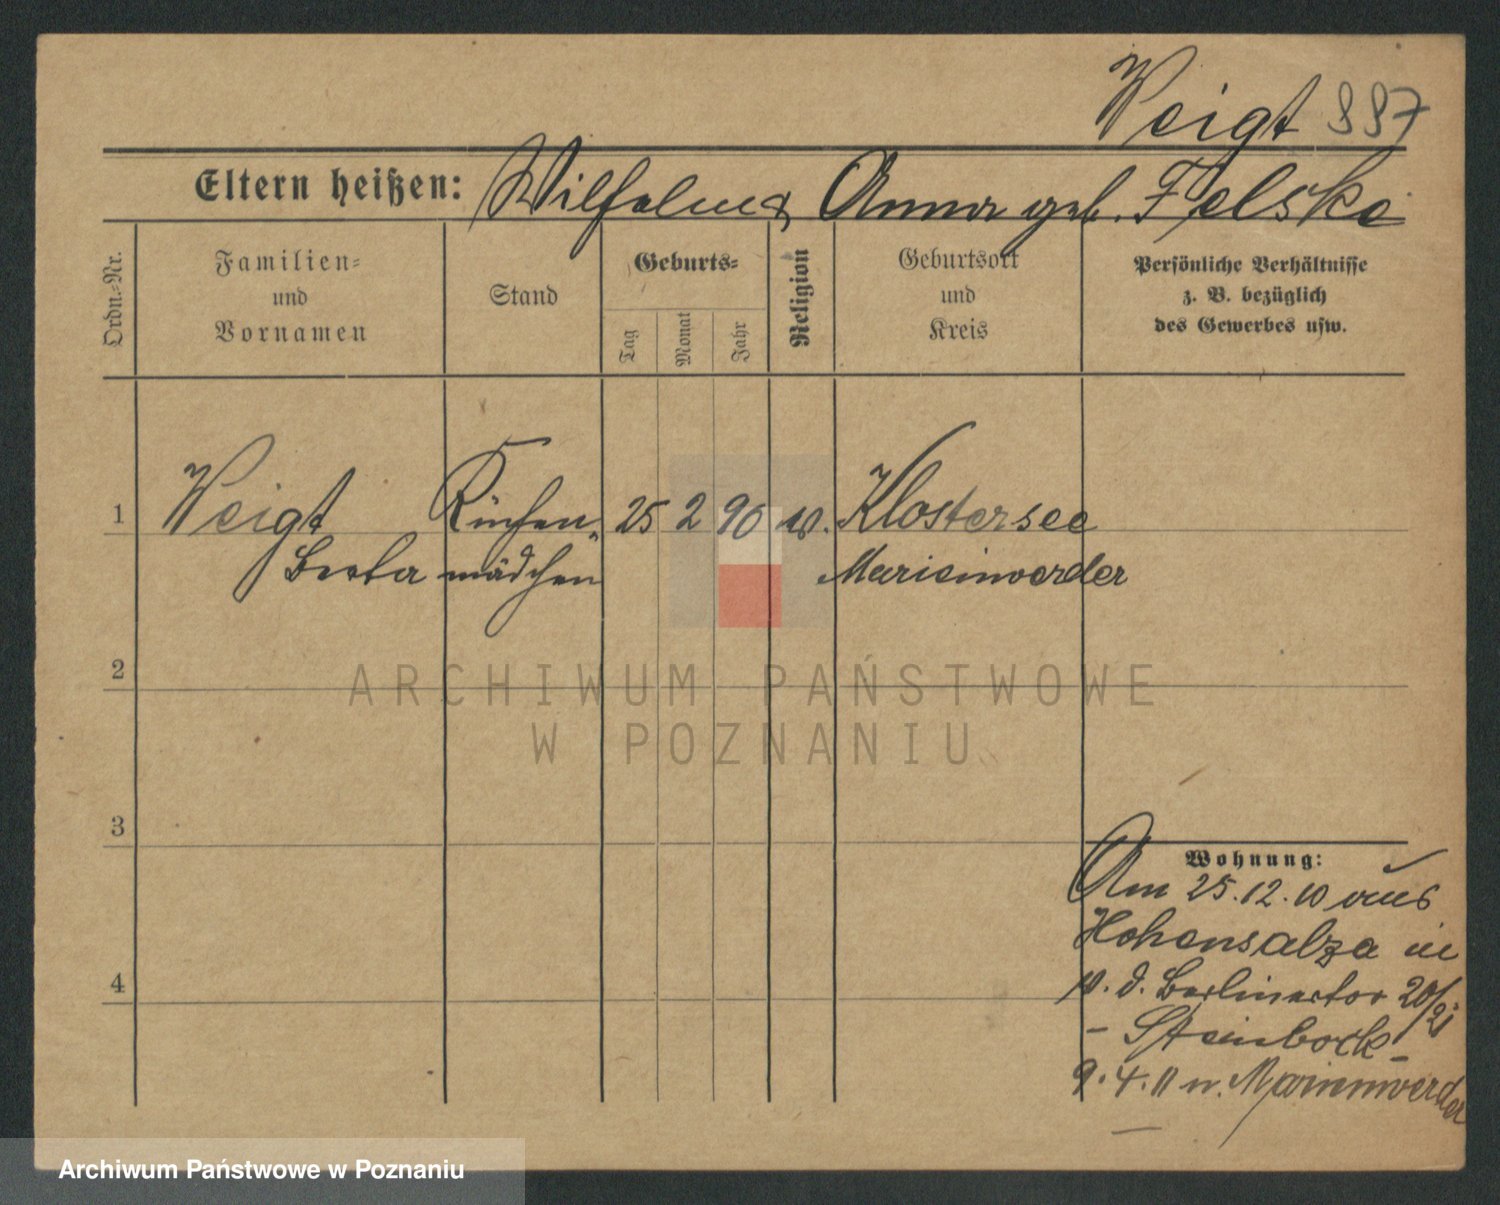 Weigt 887
Eltern heißen: Wilhelm & Anna geb. Felske
Ordn.-Nr.
Familien-
und
Vornamen
Stand
Geburts-
Tag
Monat
Jahr
Religion
Geburtsort
und
Kreis
Persönliche Verhältnisse
z. B. bezüglich
des Gewerbes usw.
1 Weigt Küchen- 25 2 90 Klostersee
Berta mädchen Marienwerder
2
3
4
Wohnung:
Am 25.12.10 aus
Hohensalza in
d. Berlinertor 20/21
- Steinbock -
9.4.11 n. Marienwerder
ARCHIWUM PAŃSTWOWE
W POZNANIU
Archiwum Państwowe w Poznaniu